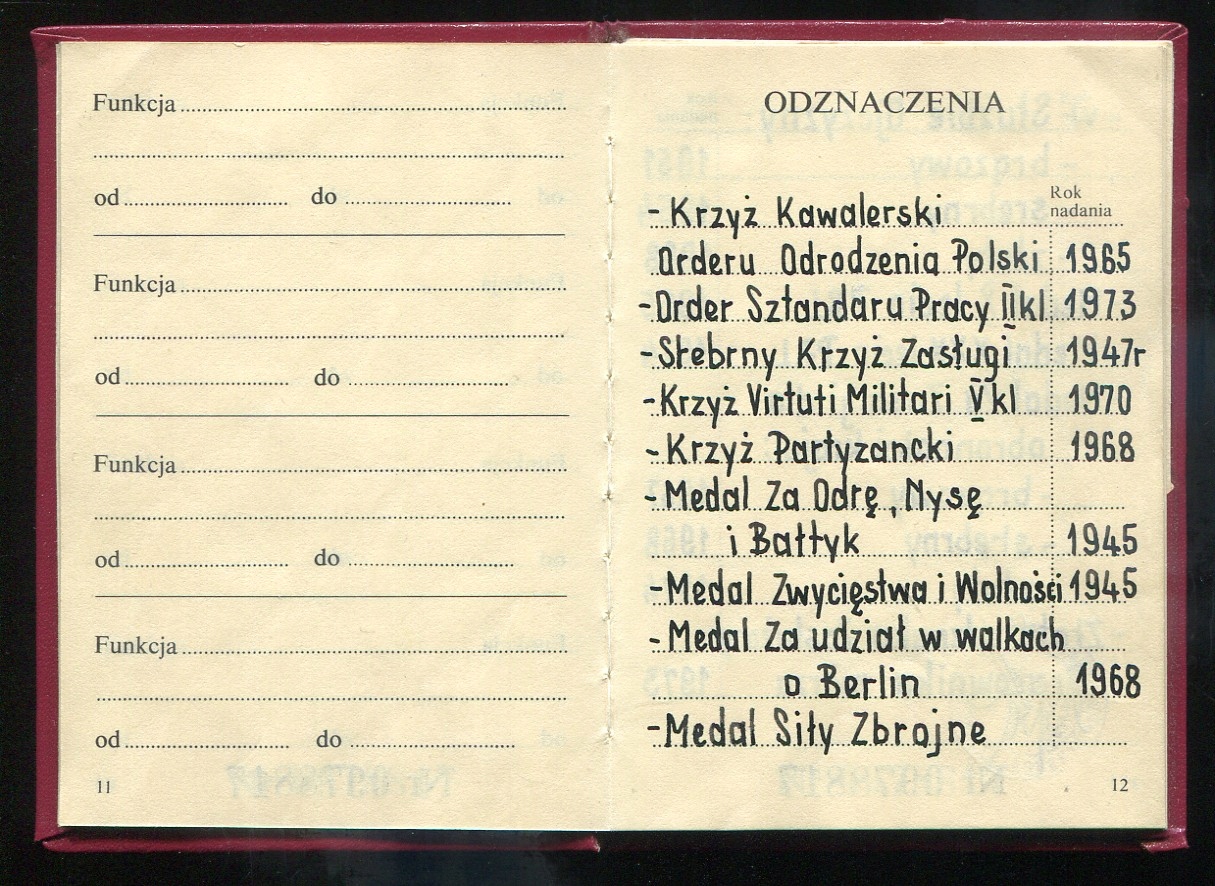 Funkcja
od do
Funkcja
od do
Funkcja
od do
Funkcja
od do
11
ODZNACZENIA
Rok
nadania
- Krzyż Kawalerski
Orderu Odrodzenia Polski 1965
- Order Sztandaru Pracy II kl 1973
- Srebrny Krzyż Zasługi 1947r
- Krzyż Virtuti Militari V kl 1970
- Krzyż Partyzancki 1968
- Medal Za Odrę, Nysę
i Bałtyk 1945
- Medal Zwycięstwa i Wolności 1945
- Medal Za udział w walkach
o Berlin 1968
- Medal Siły Zbrojne
12